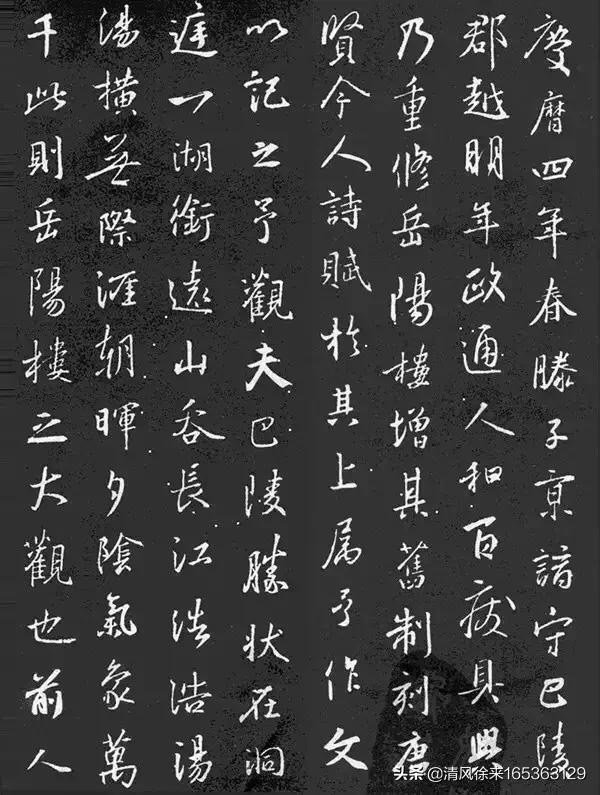 慶曆四年春滕子京謫守巴陵
郡越明年政通人和百廢具興
乃重修岳陽樓增其舊制刻唐
賢今人詩賦於其上属予作文
以記之予觀夫巴陵勝狀在洞
庭一湖銜遠山吞長江浩浩湯
湯橫無際涯朝暉夕陰氣象萬
千此則岳陽樓之大觀也前人
头条@清风徐来165363129